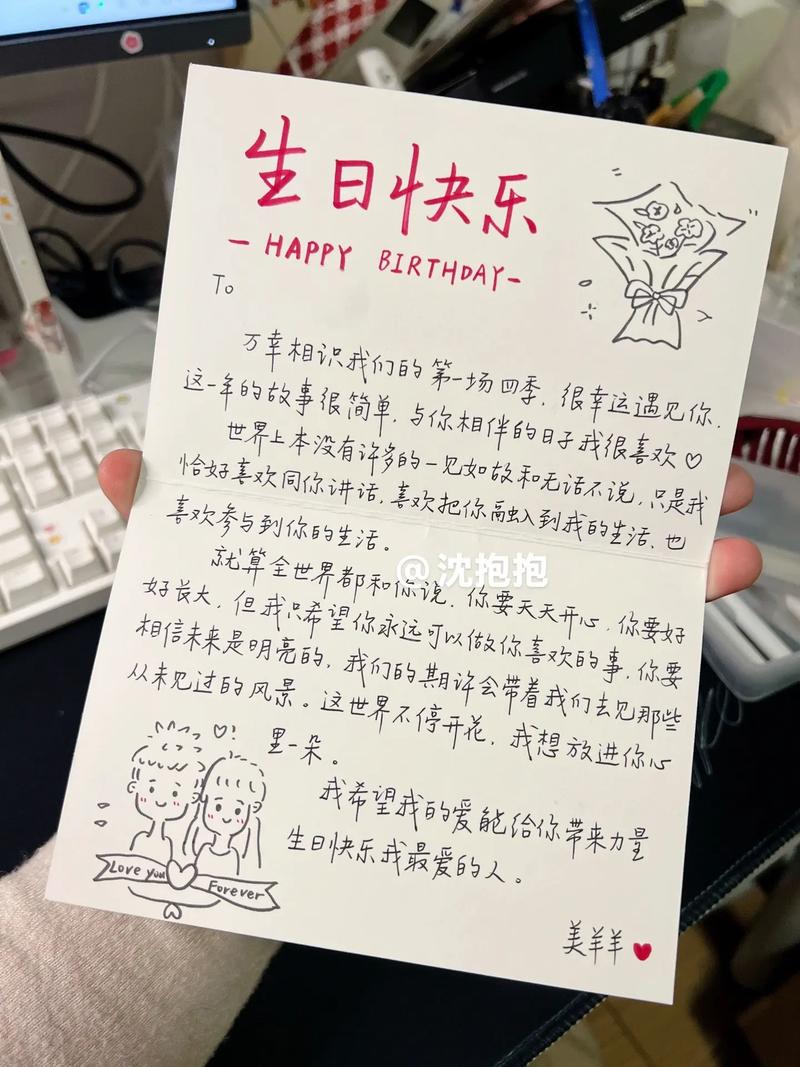 生日快乐
- HAPPY BIRTHDAY -
To
万幸相识我们的第一场四季，很幸运遇见你．
这一年的故事很简单，与你相伴的日子我很喜欢♡
世界上本没有许多的一见如故和无话不说，只是我
恰好喜欢同你讲话，喜欢把你融入到我的生活，也
喜欢参与到你的生活。
@沈抱抱
就算全世界都和你说，你要天天开心，你要好
好长大，但我只希望你永远可以做你喜欢的事，你要
相信未来是明亮的，我们的期许会带着我们去见那些
从未见过的风景。这世界不停开花，我想放进你心
里一朵。
我希望我的爱能给你带来力量
生日快乐我最爱的人。
Love you
Forever
美羊羊♥